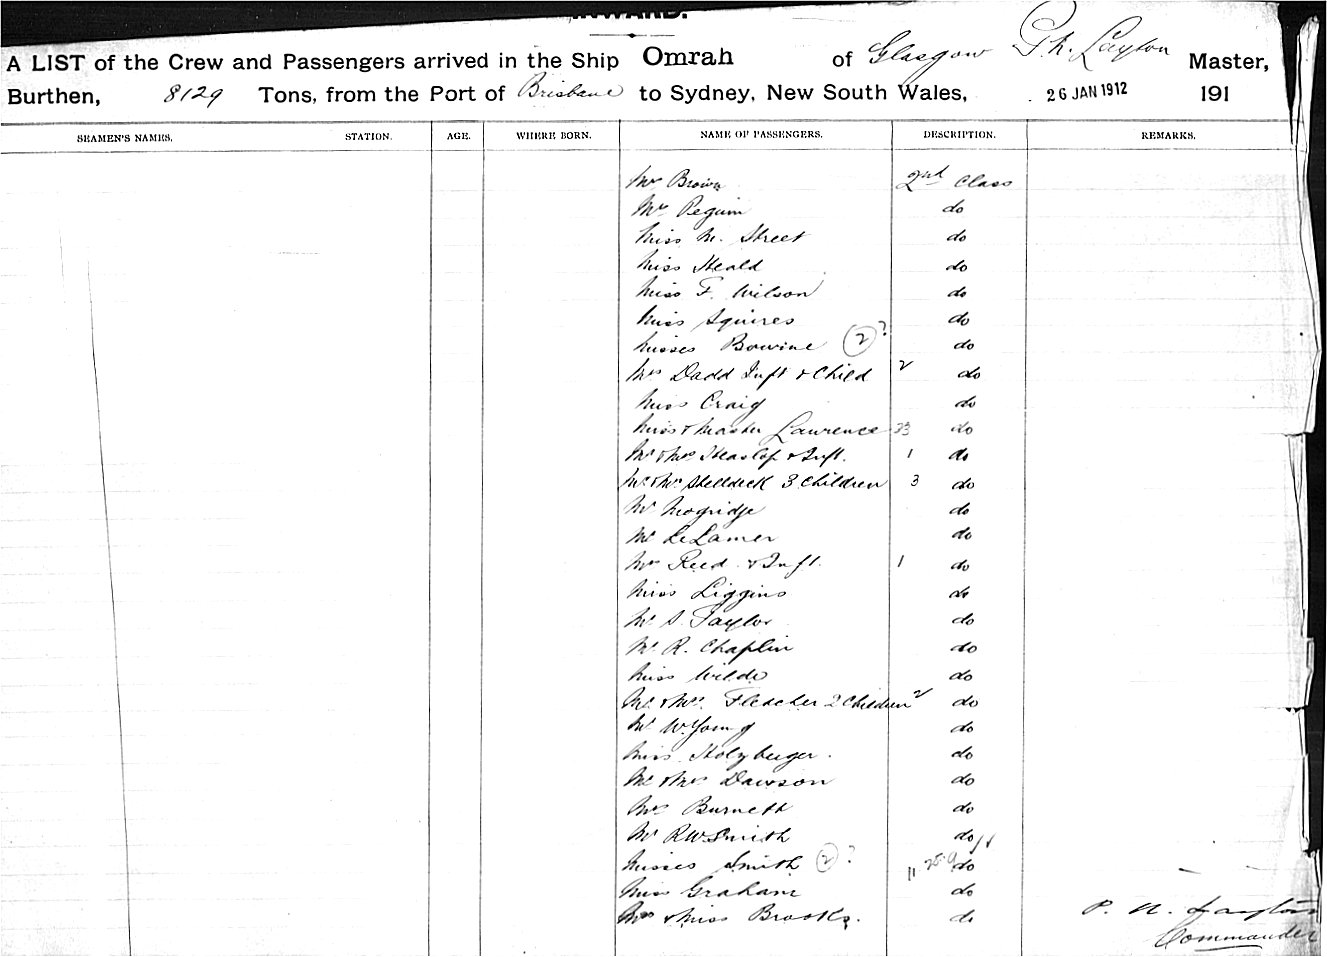 INWARD.
A LIST of the Crew and Passengers arrived in the Ship Omrah of Glasgow P. N. Layton Master,
Burthen, 8129 Tons, from the Port of Brisbane to Sydney, New South Wales, 26 JAN 1912 191
SEAMEN'S NAMES. STATION. AGE. WHERE BORN. NAME OF PASSENGERS. DESCRIPTION. REMARKS.
Mr Brown 2nd Class
Mr Pegum do
Miss M. Street do
Miss Heald do
Miss F. Wilson do
Miss Squires do
Misses Bowine (2) ? do
Mrs Dadd Inft & Child 2 do
Miss Craig do
Miss & Master Lawrence do
Mr & Mrs Heaslop & Inft. 1 do
Mr & Mrs Shelldeck 3 Children 3 do
Mr Mogridge do
Mr LeLamer do
Mrs Reed & Inft. 1 do
Miss Liggins do
Mr S. Taylor do
Mr R. Chaplin do
Miss Wilde do
Mr & Mrs Fletcher 2 Children 2 do
Mr W. Young do
Miss Holzberger. do
Mr & Mrs Dawson do
Mrs Burnett do
Mr R W Smith do
Misses Smith (2) ? do
Miss Graham do
Mrs & Miss Brooks. do
P. N. Layton
Commander